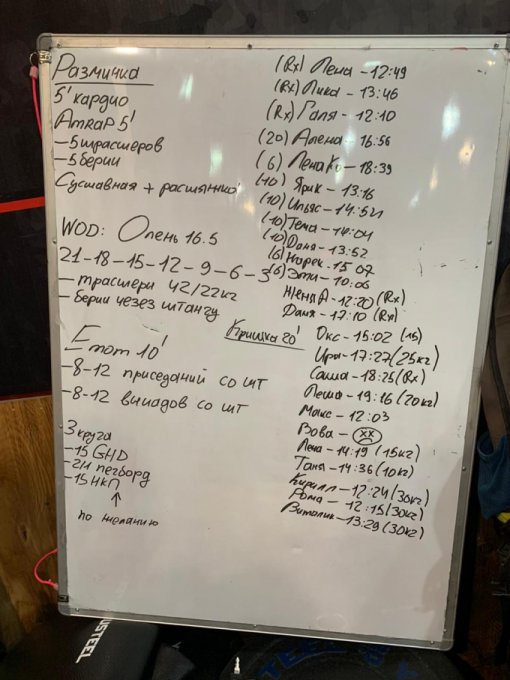 Разминка
5' кардио
AmRaP 5'
- 5 трастеров
- 5 берпи
Суставная + растяжка
WOD: Олень 16.5
21-18-15-12-9-6-3
- трастеры 42/22кг
- берпи через штангу
Крышка 20'
Emom 10'
- 8-12 приседаний со шт
- 8-12 выпадов со шт
3 круга
- 15 GHD
- 2П пегборд
- 15 НКП
↑
по желанию
(Rx) Лена - 12:49
(Rx) Лика - 13:46
(Rx) Галя - 12:10
(20) Алена - 16:56
(6) Лена Ко - 18:39
(10) Ярик - 13:16
(10) Ильяс - 14:521
(10) Тема - 14:04
(10) Даня - 13:52
(6) Нарек - 15 07
(6) Эти - 10:06
Женя А - 12:20 (Rx)
Даня - 17:10 (Rx)
Окс - 15:02 (15)
Ира - 17:27 (25кг)
Саша - 18:25 (Rx)
Леша - 19:16 (20кг)
Макс - 12:03
Вова - xx
Лена - 14:19 (15кг)
Таня - 14:36 (10кг)
Кирилл - 12:24 (30кг)
Рома - 12:15 (30кг)
Виталик - 13:29 (30кг)
USTEEL